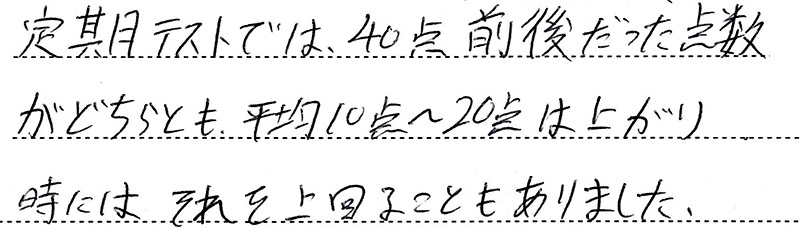 定期テストでは、40点前後だった点数
がどちらとも、平均10点～20点は上がり
時にはそれを上回ることもありました、